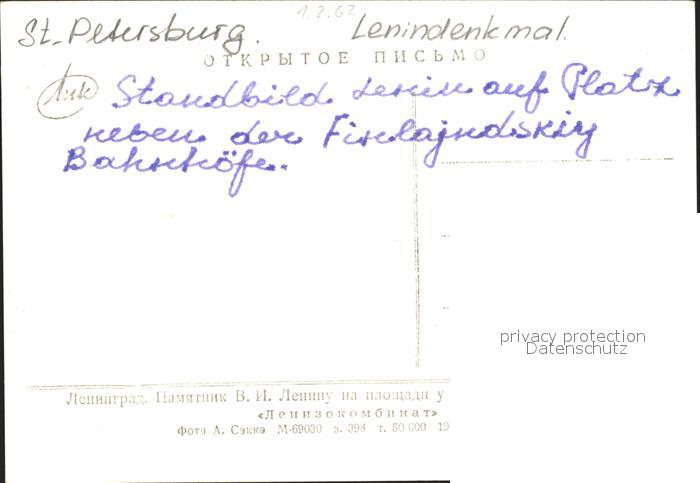 1.2.62
St. Petersburg. Lenindenkmal.
ОТКРЫТОЕ ПИСЬМО
Standbild Lenin auf Platz
neben der Finlajndskiy
Bahnhöfe.
privacy protection
Datenschutz
Ленинград. Памятник В. И. Ленину на площади у
«Ленизокомбинат»
Фото А. Сэккэ М-69030 з. 398 т. 50 000 19